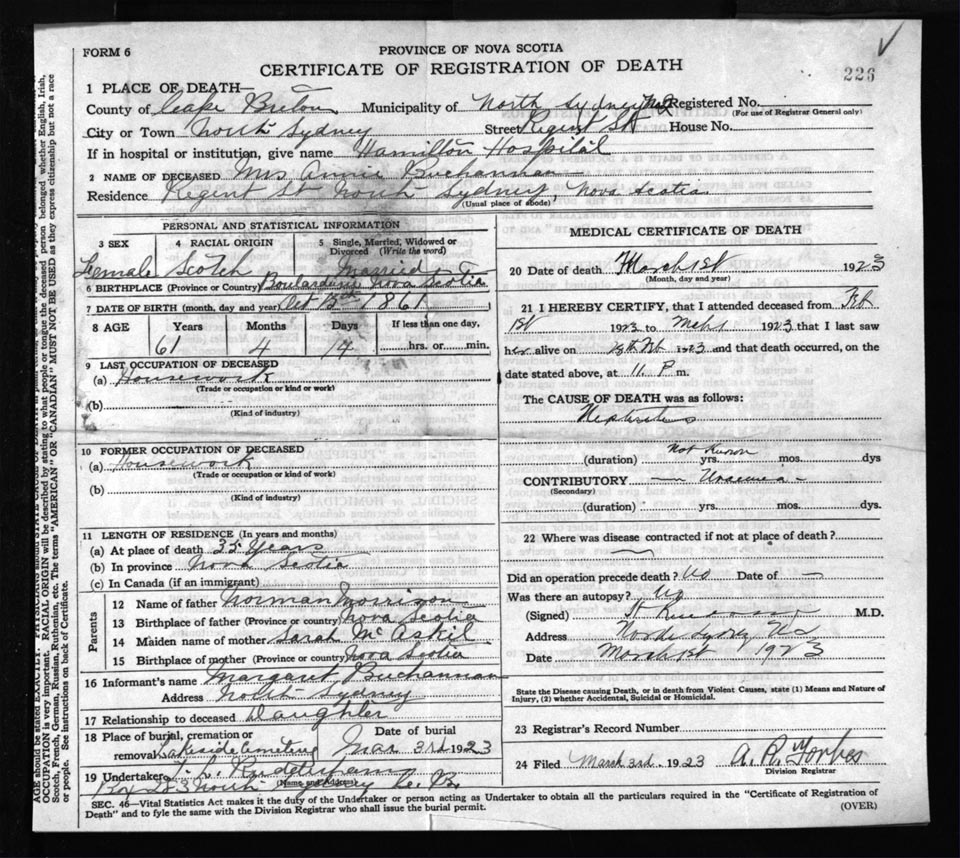 FORM 6
PROVINCE OF NOVA SCOTIA
CERTIFICATE OF REGISTRATION OF DEATH
226
1 PLACE OF DEATH—
County of Cape Breton Municipality of North Sydney Registered No.
(For use of Registrar General only)
City or Town North Sydney Street Regent St House No.
If in hospital or institution, give name Hamilton Hospital
2 NAME OF DECEASED Mrs Annie Buchannan
Residence Regent St North Sydney, Nova Scotia.
(Usual place of abode)
PERSONAL AND STATISTICAL INFORMATION
3 SEX 4 RACIAL ORIGIN 5 Single, Married, Widowed or Divorced (Write the word)
Female Scotch Married
6 BIRTHPLACE (Province or Country) Boulardarie Nova Scotia
7 DATE OF BIRTH (month, day and year) Oct 15th 1861
8 AGE Years Months Days If less than one day,
61 4 14 hrs. or min.
9 LAST OCCUPATION OF DECEASED
(a) Housework
(Trade or occupation or kind or work)
(b)
(Kind of industry)
10 FORMER OCCUPATION OF DECEASED
(a) Housework
(Trade or occupation or kind or work)
(b)
(Kind of industry)
11 LENGTH OF RESIDENCE (In years and months)
(a) At place of death 25 Years
(b) In province Nova Scotia
(c) In Canada (if an immigrant)
Parents
12 Name of father Norman Morrison
13 Birthplace of father (Province or country) Nova Scotia
14 Maiden name of mother Sarah McAskil
15 Birthplace of mother (Province or country) Nova Scotia
16 Informant's name Margaret Buchannan
Address North Sydney
17 Relationship to deceased Daughter
18 Place of burial, cremation or removal Lakeside Cemetery Date of burial Mar 3rd 1923
19 Undertaker
(Name and address)
Box 253 North Sydney C. B.
MEDICAL CERTIFICATE OF DEATH
20 Date of death March 1st 1923
(Month, day and year)
21 I HEREBY CERTIFY, that I attended deceased from Feb
1st 1923 to Mch 1 1923 that I last saw
her alive on 28th Feb 1923 and that death occurred, on the
date stated above, at 11 P m.
The CAUSE OF DEATH was as follows:
Nephritis
(duration) Not Known yrs. mos. dys
CONTRIBUTORY Uraemia
(Secondary)
(duration) yrs. mos. dys.
22 Where was disease contracted if not at place of death?
Did an operation precede death? No Date of —
Was there an autopsy? No
(Signed) M.D.
Address North Sydney NS
Date March 1st 1923
State the Disease causing Death, or in death from Violent Causes, state (1) Means and Nature of
Injury, (2) whether Accidental, Suicidal or Homicidal.
23 Registrar's Record Number
24 Filed March 3rd 1923 A. R. Forbes
Division Registrar
SEC. 46—Vital Statistics Act makes it the duty of the Undertaker or person acting as Undertaker to obtain all the particulars required in the "Certificate of Registration of
Death" and to fyle the same with the Division Registrar who shall issue the burial permit.
(OVER)
AGE should be stated EXACTLY. PHYSICIANS should STATE CAUSE OF DEATH
OCCUPATION is very important. RACIAL ORIGIN will be described by stating to what people or tongue the deceased person belonged whether English, Irish,
Scotch, French, German, Russian, Ruthenian, etc. The terms "AMERICAN" OR "CANADIAN" MUST NOT BE USED as they express citizenship but not a race
or people. See instructions on back of Certificate.